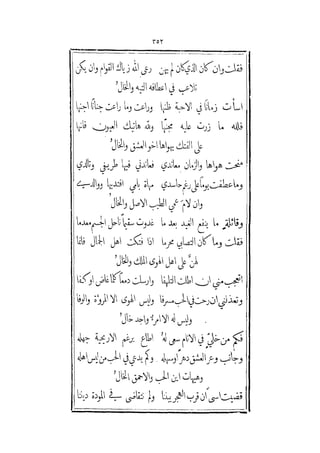 ٣٥٢
فقلت وان كان الذي كان لم يهن رعى الله ذياك القوام وان يكن
تلاعب في اعطافه التيه والخال
اسأت زمانًا في الاحبة ظنها وراعت وما راعت جنانًا اجنها
فلله ما زرت عليه مجنها ولله هاتيك العيون فانها
على الفتك يهواها اخو العشق والخال
منحت هواها والزمان معاندي فعاندني فيها طريفي وتالدي
وما عطفت يومًا على رغم حاسدي مهاة بامي افتديها ووالدي
وان لام عمي الطيب الاصل والخال
وقائلة ما ينفع الغيد بعد ما غدوت سقيمًا ناحل الجسم معدما
فقلت وما كان التصابي محرما اذا فتكت اهل الجمال فانما
لهنّ على اهل الهوى الملك والخال
اتعجب مني ان اطلت التلهفا وارسلت دمعًا كلما غاض او كفا
وتعذلني ان رحت في الحب مسرفا وليس الهوى الا المروّة والوفا
وليس له الا امرؤ واجد خال
فكم من خليّ في الانام سعى له اطاع برغم الاريحية جهله
وجانب وعر العشق دهرًا وسهله وكم يدعي في الحب من ليس اهله
وهيهات اين الحب والاحمق الخال
قضيت اسى ان قرب الهجر بيننا ولم نتقاضى في المودة ديننا